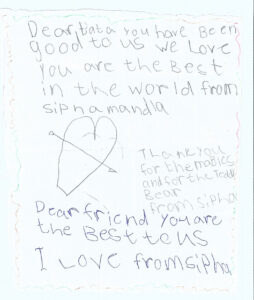 Dear, tata you have Been
good to us we Love
you are the Best
in the world from
siphamandla
Thank you
for the
and for the Tedd
Bear
from sipha
Dear friend you are
the Best to us
I LOVE from sipha